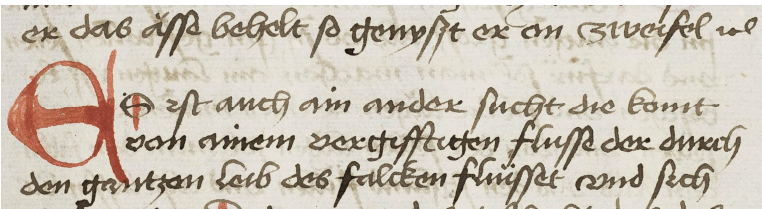 er das ässe behelt so genyszt er on zweifel wol
ES ist auch ain ander sucht die komt
von ainem vergifftigen flusse der durch
den gantzen leib des falcken flüsset vnd sich